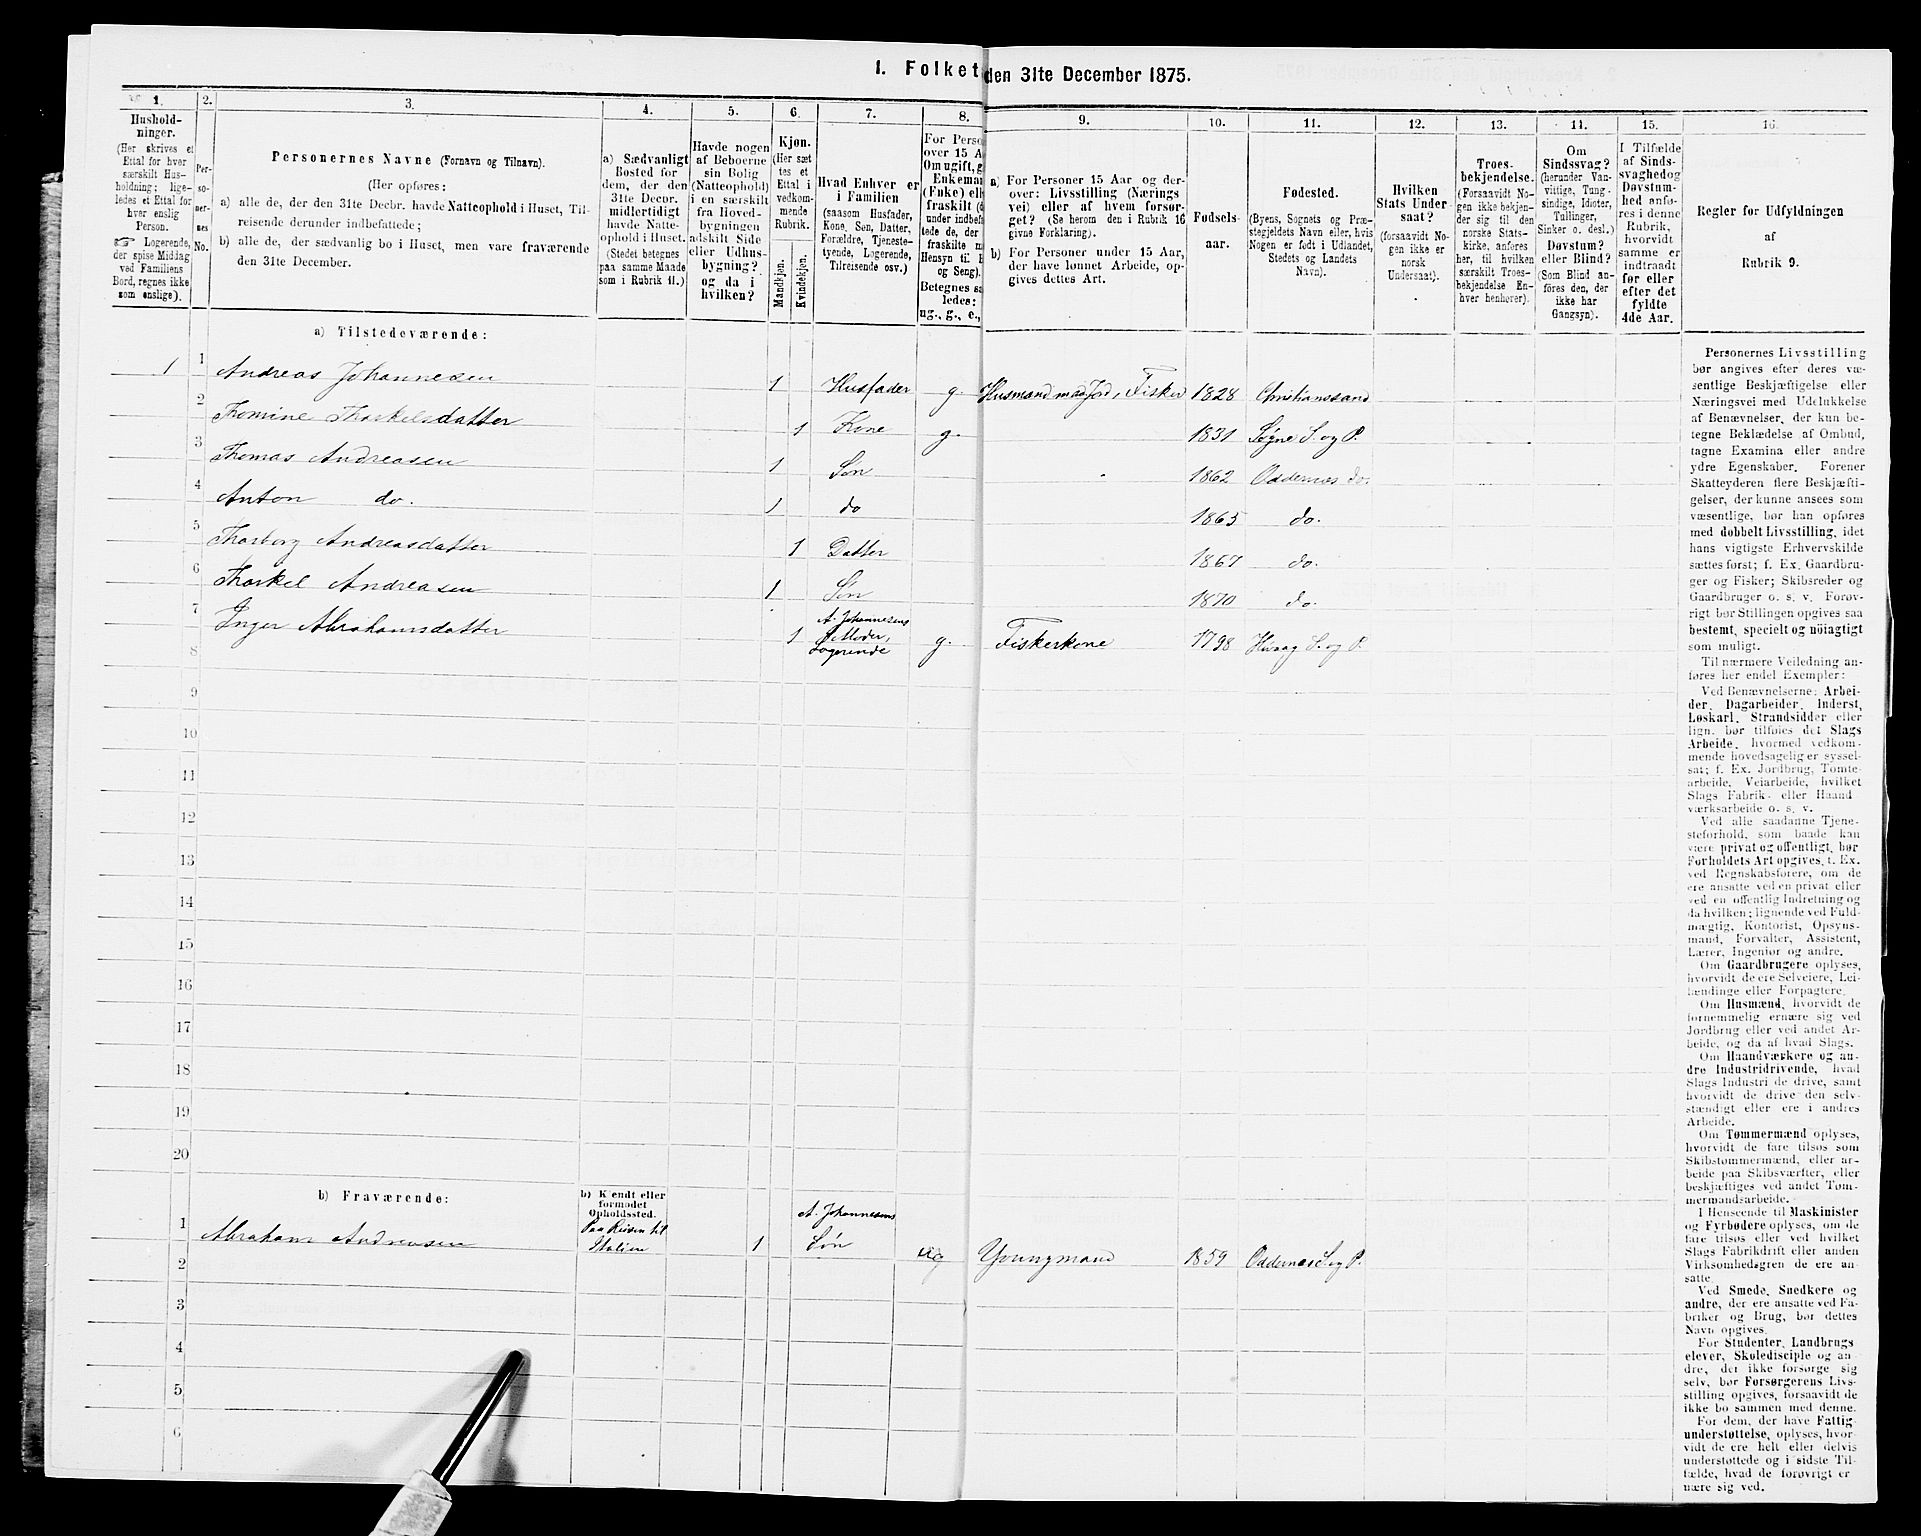 1. Folket den 31te December 1875.
1. 2. 3. 4. 5. 6. 7. 8. 9. 10. 11. 12. 13. 14. 15. 16.
Hushold-
ninger.
(Her skrives et
Ettal for hver
særskilt Hus-
holdning; lige-
ledes et Ettal for
hver enslig
Person.
☞ Logerende,
der spise Middag
ved Familiens
Bord, regnes ikke
som enslige).
Per-
so-
ner-
nes
No.
Personernes Navne (Fornavn og Tilnavn).
(Her opføres:
a) alle de, der den 31te Decbr. havde Natteophold i Huset, Til-
reisende derunder indbefattede;
b) alle de, der sædvanlig bo i Huset, men vare fraværende
den 31te December.
a) Sædvanligt
Bosted for
dem, der den
31te Decbr.
midlertidigt
havde Natte-
ophold i Huset.
(Stedet betegnes
paa samme Maade
som i Rubrik 11.)
Havde nogen
af Beboerne
sin Bolig
(Natteophold)
i en særskilt
fra Hoved-
bygningen
adskilt Side
eller Udhus-
bygning?
og da i
hvilken?
Kjøn.
(Her sæt
tes et
Ettal i
vedkom-
mende
Rubrik.
Mandkjøn.
Kvindekjøn.
Hvad Enhver er
i Familien
(saasom Husfader,
Kone, Søn, Datter,
Forældre, Tjeneste-
tyende, Logerende,
Tilreisende osv.)
For Perso
over 15 A
Om ugift, g
Enkeman
(Enke) ell
fraskilt (
under indbef
tede de, der
fraskilte m
Hensyn til B
og Seng).
Betegnes s
ledes:
ug., g., e.,
a) For Personer 15 Aar og der-
over: Livsstilling (Nærings
vei) eller af hvem forsør-
get? (Se herom den i Rubrik 16
givne Forklaring).
b) For Personer under 15 Aar,
der have lønnet Arbeide, op-
gives dettes Art.
Fødsels-
aar.
Fødested.
(Byens, Sognets og Præ-
stegjeldets Navn eller, hvis
Nogen er født i Udlandet,
Stedets og Landets
Navn).
Hvilken
Stats Under-
saat?
(forsaavidt No-
gen ikke er
norsk
Undersaat).
Troes-
bekjendelse.
(Forsaavidt No-
gen ikke bekjen-
der sig til den
norske Stats-
kirke, anføres
her, til hvilken
særskilt Troes-
bekjendelse En-
hver henhører).
Om
Sindssvag?
(herunder Van-
vittige, Tung-
sindige, Idioter,
Tullinger,
Sinker o. desl.)
Døvstum?
eller Blind?
(Som Blind an-
føres den, der
ikke har
Gangsyn).
I Tilfælde
af Sinds-
svaghed og
Døvstum-
hed anfø-
res i denne
Rubrik,
hvorvidt
samme er
indtraadt
før eller
efter det
fyldte
4de Aar.
Regler for Udfyldningen
af
Rubrik 9.
a) Tilstedeværende:
1 1 Andreas Johannesen 1 Husfader g. Husmand med Jord, Fisker 1828 Christianssand
2 Thomine Thorkelsdatter 1 Kone g. 1831 Søgne S. og P.
3 Thomas Andreasen 1 Søn 1862 Oddernes do.
4 Anton do. 1 do 1865 do.
5 Thorborg Andreasdatter 1 Datter 1867 do.
6 Thorkel Andreasen 1 Søn 1870 do.
7 Inger Abrahamsdatter 1 A. Johannesens
Moder,
Logerende g. Fiskerkone 1798 S. og P.
8
9
10
11
12
13
14
15
16
17
18
19
20
b) Fraværende:
b) Kjendt eller
formodet
Opholdssted.
1 Abraham Andreasen Paa Reisen til
Italien 1 A. Johannesens
Søn ug Youngmand 1859 Oddernes S. og P.
2
3
4
5
6
Personernes Livsstilling
bør angives efter deres væ-
sentlige Beskjæftigelse eller
Næringsvei med Udelukkelse
af Benævnelser, der kun be-
tegne Beklædelse af Ombud,
tagne Examina eller andre
ydre Egenskaber. Forener
Skatteyderen flere Beskjæfti-
gelser, der kunne ansees som
væsentlige, bør han opføres
med dobbelt Livsstilling, idet
hans vigtigste Erhvervskilde
sættes først; f. Ex. Gaardbru-
ger og Fisker; Skibsreder og
Gaardbruger o. s. v. Forøv-
rigt bør Stillingen opgives saa
bestemt, specielt og nöiagtigt
som muligt.
Til nærmere Veiledning an-
føres her endel Exempler:
Ved Benævnelserne: Arbei-
der, Dagarbeider, Inderst,
Løskarl, Strandsidder eller
lign. bør tilføies det Slags
Arbeide, hvormed vedkom-
mende hovedsagelig er syssel-
sat; f. Ex. Jordbrug, Tomte-
arbeide, Veiarbeide, hvilket
Slags Fabrik- eller Haand-
værksarbeide o. s. v.
Ved alle saadanne Tjene-
steforhold, som baade kan
være privat og offentligt, bør
Forholdets Art opgives, t. Ex.
ved Regnskabsførere, om de
ere ansatte ved en privat eller
ved en offentlig Indretning og
da hvilken; lignende ved Fuld-
mægtig, Kontorist, Opsyns-
mand, Forvalter, Assistent,
Lærer, Ingeniør og andre.
Om Gaardbrugere oplyses,
hvorvidt de ere Selveiere, Lei-
lændinge eller Forpagtere.
Om Husmænd, hvorvidt de
fornemmelig ernære sig ved
Jordbrug eller ved andet Ar-
beide, og da af hvad Slags.
Om Haandværkere og an-
dre Industridrivende, hvad
Slags Industri de drive, samt
hvorvidt de drive den selv-
stændigt eller ere i andres
Arbeide.
Om Tømmermænd oplyses,
hvorvidt de fare tilsøs som
Skibstømmermænd, eller ar-
beide paa Skibsværfter, eller
beskjæftiges ved andet Tøm-
mermandsarbeide.
I Henseende til Maskinister
og Fyrbødere oplyses, om de
fare tilsøs eller ved hvilket
Slags Fabrikdrift eller anden
Virksomhedsgren de ere an-
satte.
Ved Smede, Snedkere og
andre, der ere ansatte ved Fa-
briker og Brug, bør dettes
Navn opgives.
For Studenter, Landbrugs-
elever, Skoledisciple og an-
dre, der ikke forsørge sig
selv, bør Forsørgerens Livs-
stilling opgives, forsaavidt de
ikke bo sammen med denne.
For dem, der have Fattig-
understøttelse, oplyses, hvor-
vidt de ere helt eller delvis
understøttede og i sidste Til-
fælde, hvad de forøvrigt er
nære sig ved.